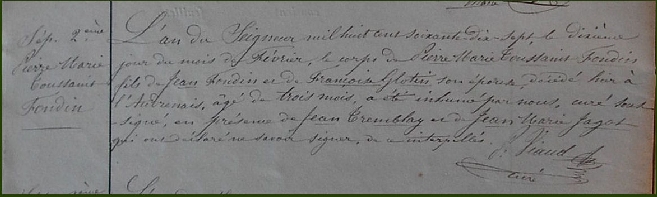 Sép. 2ème
Pierre Marie
Toussaint
Fondin
L'an du Seigneur mil huit cent soixante dix-sept, le dixième
jour du mois de Février, le corps de Pierre Marie Toussaint Fondin
fils de Jean Fondin et de Françoise Glotin, son épouse, décédé hier à
l'Autrenais, agé de trois mois, a été inhumé par nous, curé sous-
signé, en présence de Jean Tremblay et de Jean Marie Jagot
qui ont déclaré ne savoir signer, de ce interpellés.
Viaud
curé